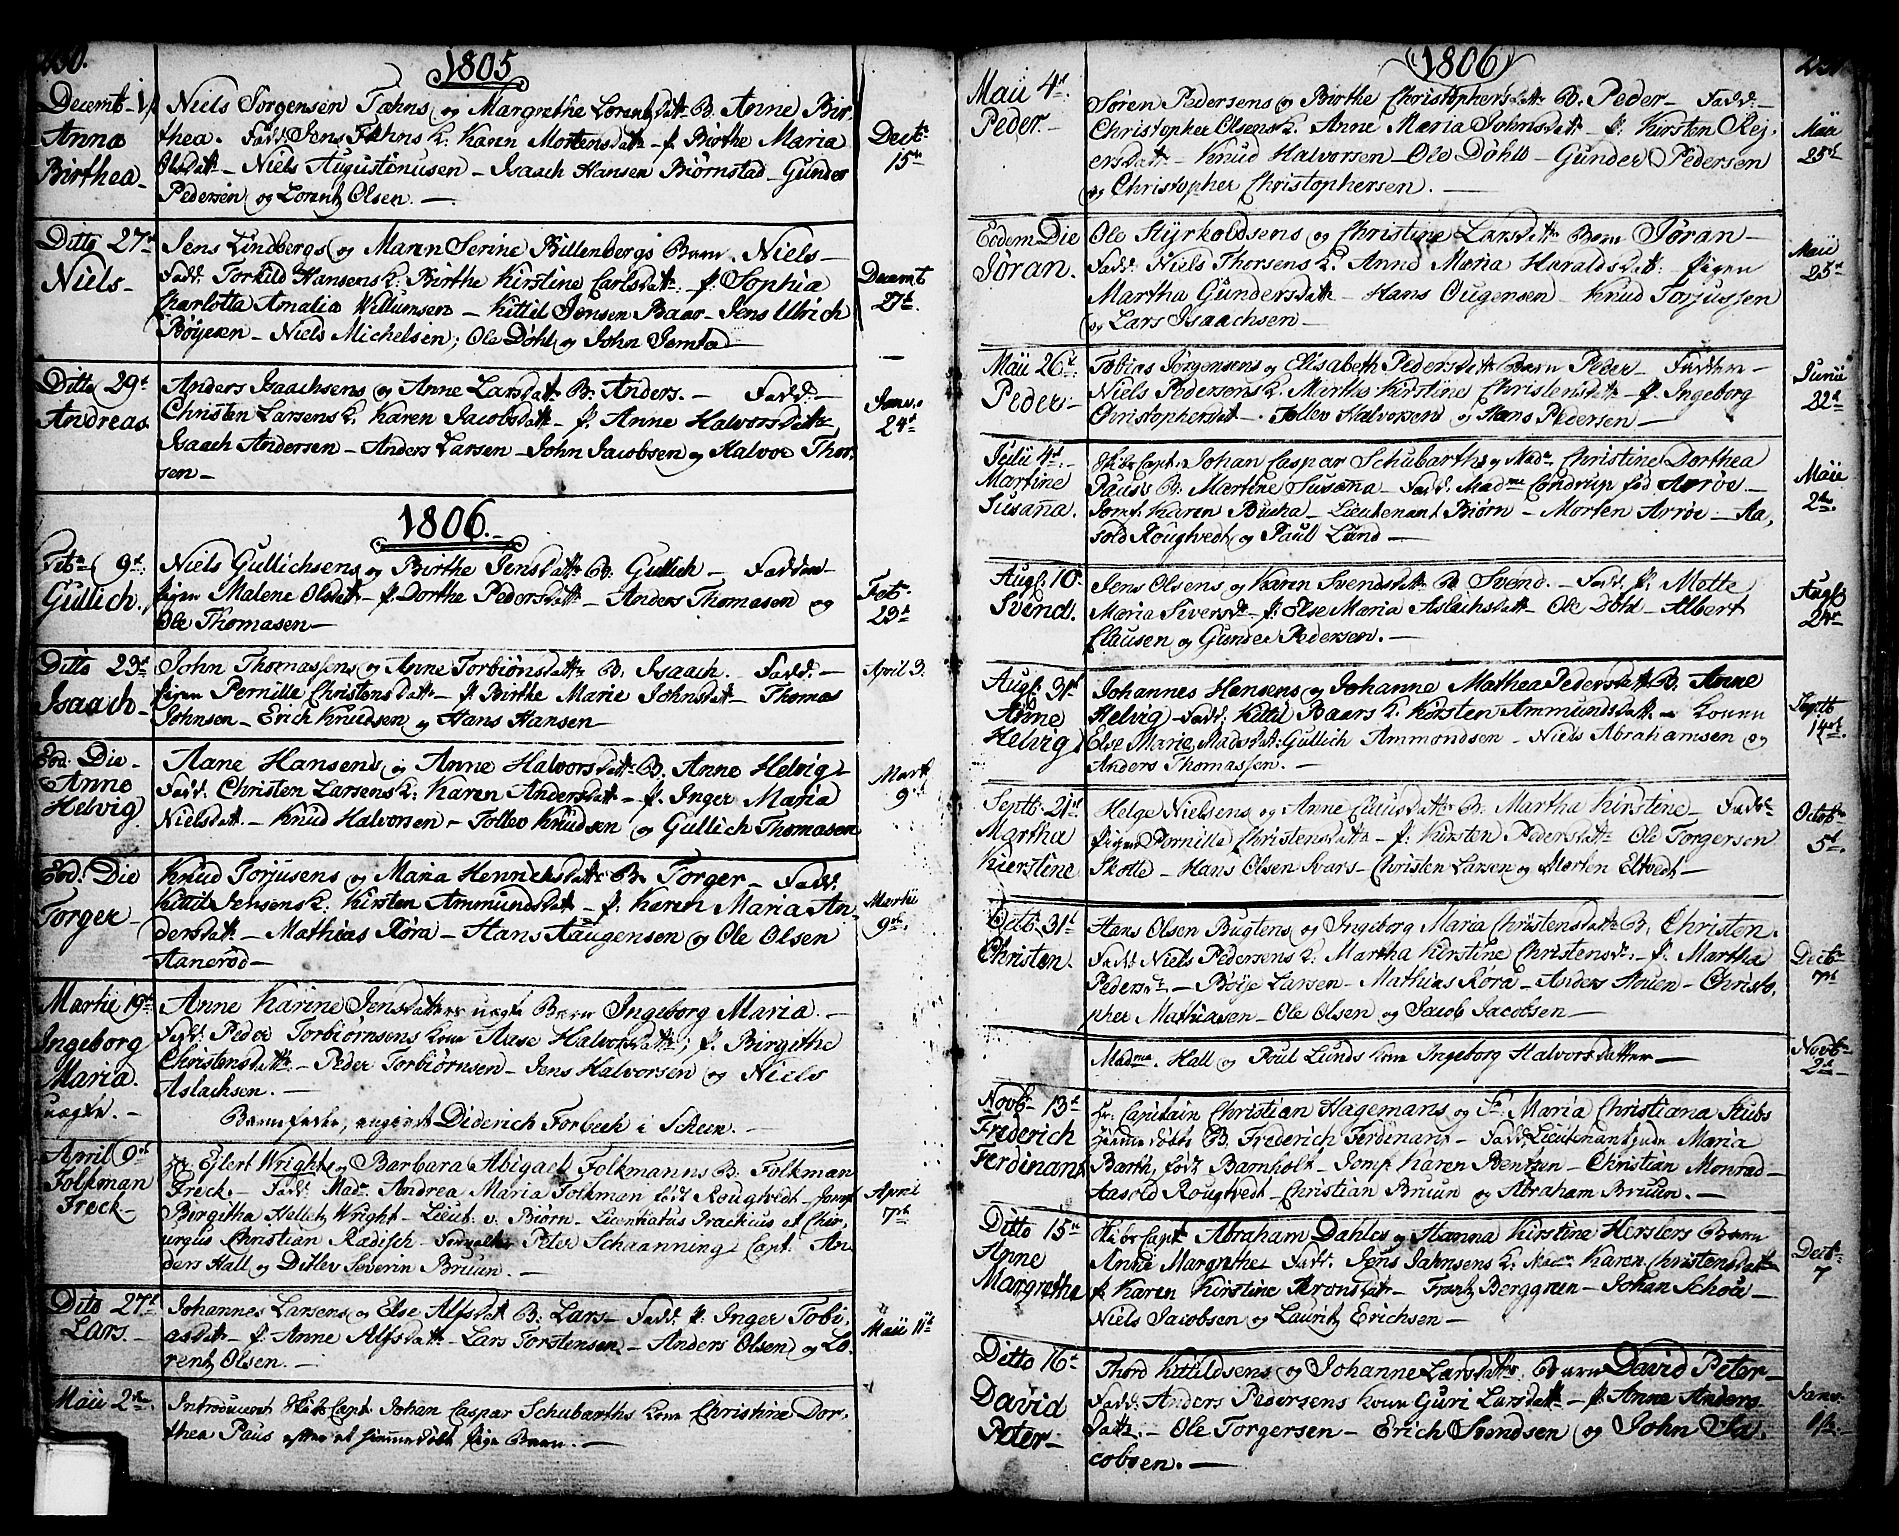 1805
Decemb 1
Anna
Birthea
Niels Jorgensen Fæhns og Margrethe Lorentzdatt B. Anne Bir
thea. Fadd. Jens Fæhns K. Karen Mortensdatt – p. Birthe Maria
Olsdatt – Niels Augustinusen – Isaach Hansen Biørnstad – Gunder
Pedersen og Lorentz Olsen. –
Decbr
15de
Ditto 27d
Niels –
Jens Lindbergs og Maren Serine Billenbergs Barn. Niels –
Fadd. Torkild Hansens K. Birthe Kirstine Carlsdatt. – p. Sophia
Charlotta Amalia Willumsen – Kittil Jensen Baar – Jens Ulrich
Böyesen – Niels Michelsen, Ole Döhl og John Jemtæ –
Decemb
27de
Ditto 29d
Andreas
Anders Isaachsens og Anne Larsdatt B. Anders. – Fadd. –
Christen Larsens K. Karen Jacobsdatt – p. Anne Halvorsdatt
Isaach Andersen – Anders Larsen – John Jacobsen og Halvor Thor
sen –
Janv.
24d
1806.
Febr 9d.
Gullich
Niels Gullichsens og Birthe Jensdatt B. Gullich – Fadder –
pigen Malene Olsdatt – p. Dorthe Pedersdatt – Anders Thomasen og
Ole Thomasen –
Febr.
23d
Ditto 23d
Isaach –
John Thomassens og Anne Torbiönsdatt B. Isaach. Fadd. –
pigen Pernille Christensdatt – p. Birthe Marie Johnsdatt – Thomas
Johnsen – Erich Knudsen og Hans Hansen –
April 3.
Eod. Die –
Anne
Helvig
Aane Hansens og Anne Halvorsdatt B. Anne Helvig –
Fadd. Christen Larsens K. Karen Andersdatt – p. Inger Maria
Nielsdatt. – Knud Halvorsen – Tollev Knudsen og Gullich Thomasen
Marti
9d
Eod. Die
Torger –
Knud Torjusens og Maria Henrichsdatt B. Torger – Fadd.
Kittil Jensens K. Kirsten Ammundsdatt – p. Karen Maria An
dersdatt – Mathias Röra – Hans Aaugensen og Ole Olsen
Aanerød –
Martii
9de.
Martii 19d
Ingeborg
Maria.
uægte. –
Anne Karine Jensdatters uægte Barn Ingeborg Maria. –
Fadd. Peder Torbiörnsens kone Aase Halvorsdatt; p. Birgithe
Christensdatt. – Peder Torbiörnsen – Jens Halvorsen og Niels
Aslachsen. –
Barnefader, angivet Diderich Forbech i Scheen. –
April 9d
Folkman
Freck –
Hr. Ejlert Wright og Barbara Abigael Folkmanns B. Folkman
Freck. – Fadd. Mad. Andrea Maria Folkman født Rougtvedt – Jomf.
Borgitha Hellet Wright – Lieut. v. Biørn – Licentiatus Practicus et Chir,
urgus Christian Radisch – Forvalter Peter Schaanning Capt. An
ders Hall og Ditlev Severin Bruun. –
April
7de
Dito 27d
Lars. –
Johannes Larsens og Else Alfsdatt B. Lars – Fadd. p. Inger Tobi,
asdatt – p. Anne Alfsdatt – Lars Torstensen – Anders Olsen og Lo,
rentz Olsen. –
Maii 11te
Maii 2de.
Introduceret Skibs Capt. Johan Caspar Schubarths kone Christina Dor,
thea Paus efter et hiemmedöbt pige Barn. –
1806
Maii 4de.
Peder. –
Søren Pedersens og Birthe Christophersdatt B. Peder – Fadd. –
Christopher Olsens K. Anne Maria Johnsdatt – p. Kirsten Rej,
ersdatt – Knud Halvorsen – Ole Döhl – Gunder Pedersen
og Christopher Christophersen. –
Maii
25de
Eodem Die
Jöran.
Ole Styrkoldsens og Christine Larsdatt Barn Jöran –
Fadd. Niels Thorsens K. Anne Maria Haraldsdatt. – pigen
Martha Gundersdatt – Hans Ougensen – Knud Torjussen
og Lars Isaachsen –
Maii
25de
Maii 26d
Peder –
Tobias Jörgensens og Elisabeth Pedersdatt Barn Peder – Fadder –
Niels Pedersens K. Marthe Kirstine Christensdatt – p. Ingeborg
Christophersdatt – Tollev Halvorsen og Hans Pedersen –
Junii
22d
Julii 4d. –
Martine
Susana.
Skibs Capt. Johan Caspar Schubarths og Mad. Christine Dorthea
Pauss B. Martine Susana – Fadd. Madme Condrup fød Arröe –
Jomf. Karen Bucka – Lieutenant Biørn – Morten Arröe – Aa,
sold Rougtvedt og Paull Lund –
Maii
2de.
Augs. 10.
Svend.
Jens Olsens og Karen Svendsdatt B. Svend. – Fadd. p. Mette
Maria Siversdt – p. Else Maria Aslachsdatt – Ole Döhl – Albert
Clausen og Gunder Pedersen. –
Augs.
24de
Augs. 31d
Anne
Helvig
Johannes Hansens og Johanne Mathea Pedersdatt B. Anne
Helvig – Fadd. Kittil Baars K. Kirsten Ammundsdatt. – konen
Else Marie Madsdatt. Gullich Ammondsen – Niels Abrahamsen og
Anders Thomassen. –
Septb
14de.
Septb. 21d
Martha
Kierstine
Helge Nielsens og Anne Clausdatt B. Martha Kirstine – Fadd.
Pigen Pernille Christensdatt – p. Kirsten Pedersdatt Ole Torgersen
Skotte – Hans Olsen Svars – Christen Larsen og Morten Eltvedt –
Octob
5d.
Octb. 31d
Christen.
Hans Olsen Bugtens og Ingeborg Maria Christensdatt B. Christen.
Fadd. Niels Pedersens K. Martha Kirstine Christensdt. – p. Martha
Pedersdt. – Böije Larsen – Mathias Röra – Anders Houen – Christo,
pher Mathiasen – Ole Olsen og Jacob Jacobsen –
Decb
7de
Madme. Hall og Poul Lunds kone Ingeborg Halvorsdatter –
Novb
2de
Novb. 13d
Frederich
Ferdinant
Hr. Capitain Christian Hagemans og Fr. Maria Christiana Stubs
hiemmedöbte B. Frederich Ferdinant – Fadd. Lieutenant Maria
Barth, född Barnholt – Jomf. Karen Bentzen – Christian Monrad –
Aasold Rougtvedt – Christian Bruun og Abraham Bruun. –
Ditto 15de
Anne
Margrethe
Skibs Capt. Abraham Dahls og Hanna Kirstine Herslers Barn
Anne Margrethe Fadd. Jens Jahnsens K. Mad. Karen Christensdatt
p. Karen Kirstine Aronsdatt – Frantz Berggren – Johan Schou –
Niels Jacobsen og Lauritz Erichsen –
Decb.
7
Ditto 16d
David
Peter –
Thord Kittildsens og Johanne Larsdatt Barn David Peter –
Fadd. Anders Pedersens kone Guri Larsdatt – p. Anne Anders
datt. – Ole Torgersen – Erich Svendsen og John Ja,
cobsen. –
Janv.